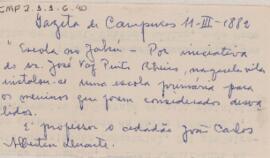 CMP 2.3.3.6.40
Gazeta de Campinas 11-III-1882
"Escola no Jahú - Por iniciativa
do sr. José Vaz Pinto Ribeiro, naquela vila
instalou-se uma escola primaria para
os meninos que forem considerados desva
lidos.
E' professor o cidadão João Carlos